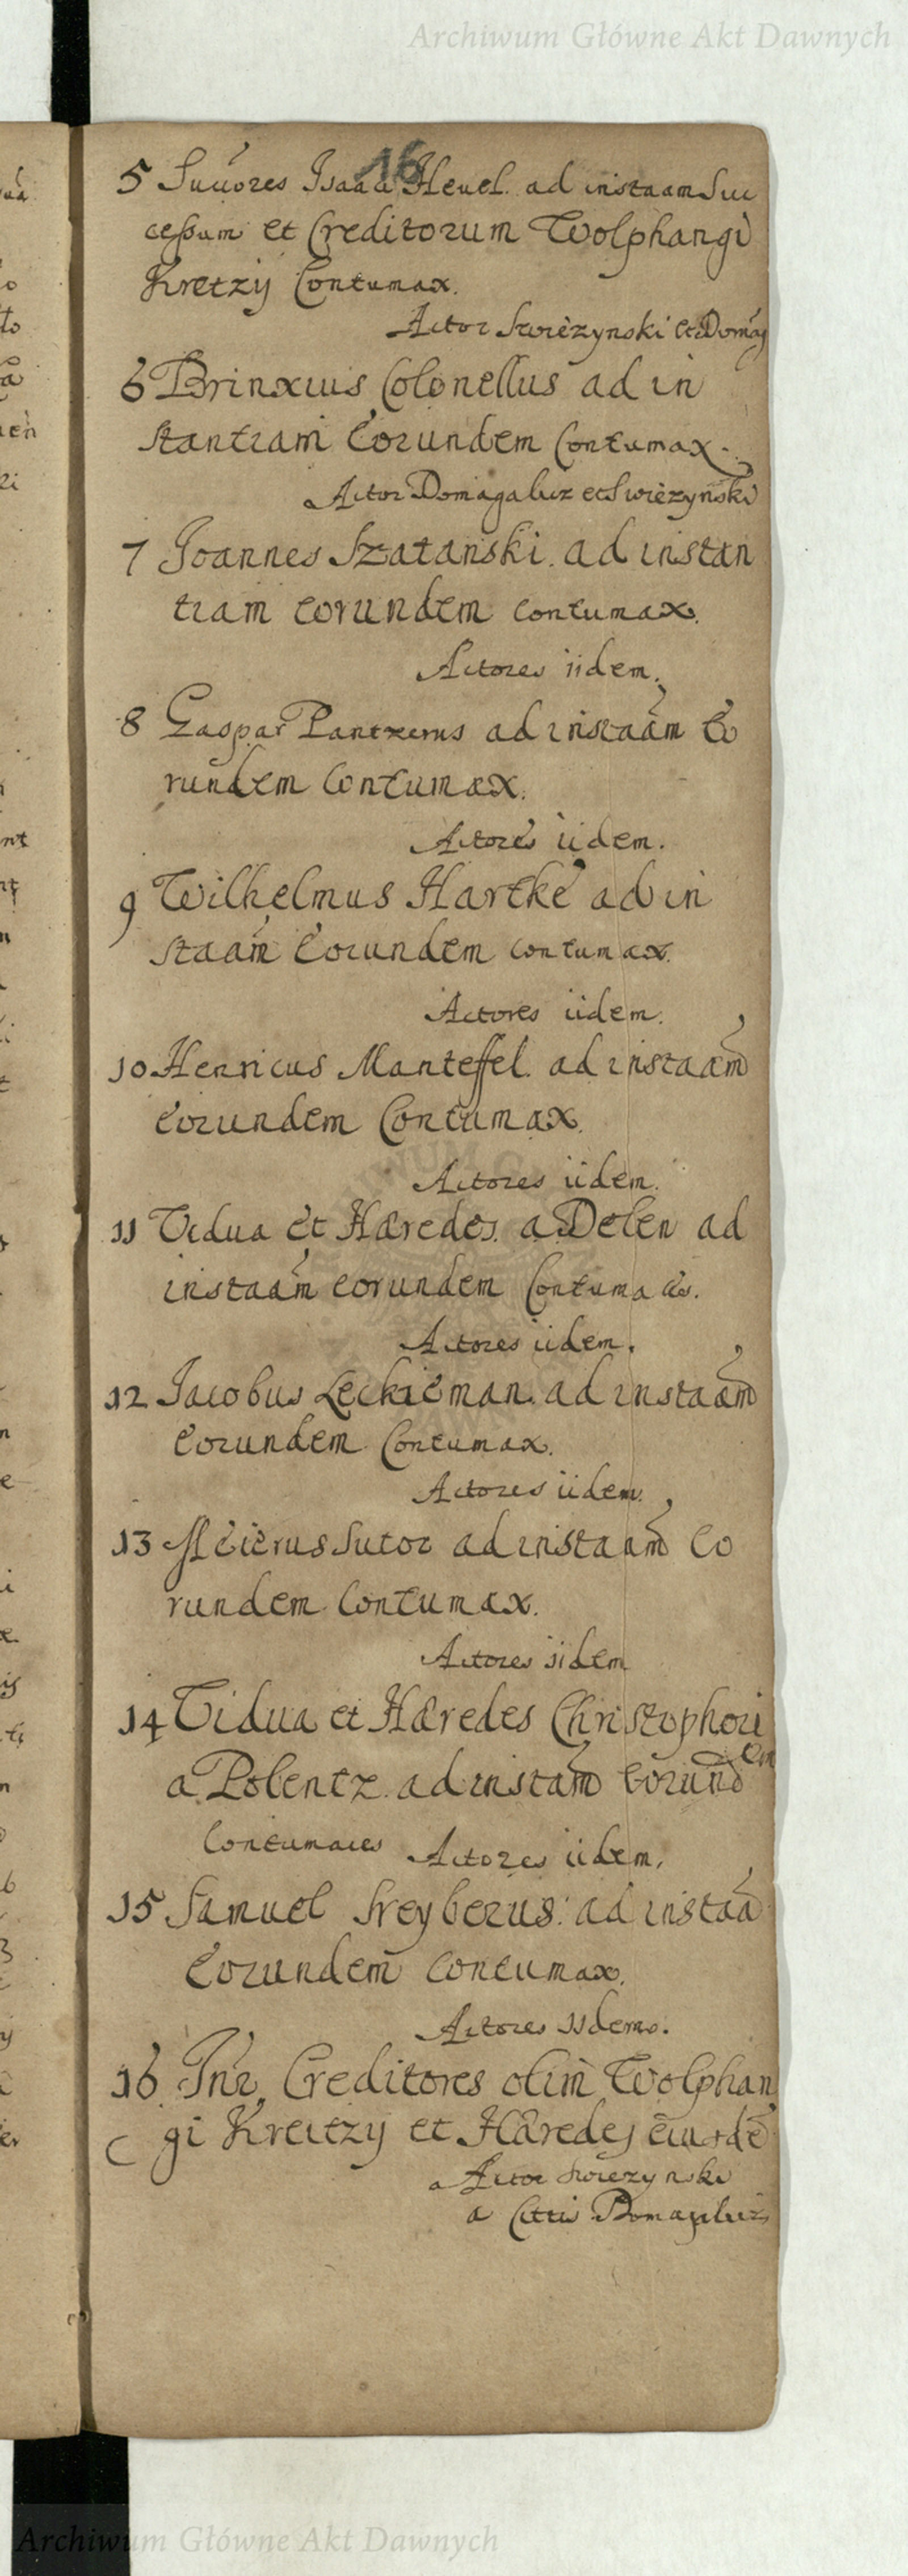 Archiwum Główne Akt Dawnych
16
5 Succ̃ores Isaaci Hevel. ad instaam Suc
cessum et Creditorum Wolphangi
Kretzij Contumax.
Actor Swiezynski et Domag
6 Brinxius Colonellus ad in
stantiam Eorundem Contumax.
Actor Domagalicz et Swiezynski
7 Joannes Szatanski. ad instan
tiam eorundem contumax.
Actores iidem.
8 Gaspar Pantzerus ad instaam Eo
rundem Contumax.
Actores iidem.
9 Wilhelmus Hartke ad in
staam Eorundem contumax.
Actores iidem.
10 Henricus Manteffel. ad instaam
Eorundem Contumax.
Actores iidem.
11 Vidua et Hæredes. a Delen ad
instaam eorundem Contumaces.
Actores iidem.
12 Jacobus Leckieman. ad instaam
Eorundem Contumax.
Actores iidem.
13 Meierus Sutor ad instaam Eo
rundem Contumax.
Actores iidem
14 Vidua et Hæredes Christophori
a Polentz. ad instam Eorundem
Contumaces Actores iidem.
15 Samuel Sreyberus: ad instaa
Eorundem contumax.
Actores iidem.
16 Inr̃ Creditores olim Wolphan
C gi Kreitzy et Hæredes eiusdẽ
a Actor Swiezynski
a Citti Domagalicz
Archiwum Główne Akt Dawnych